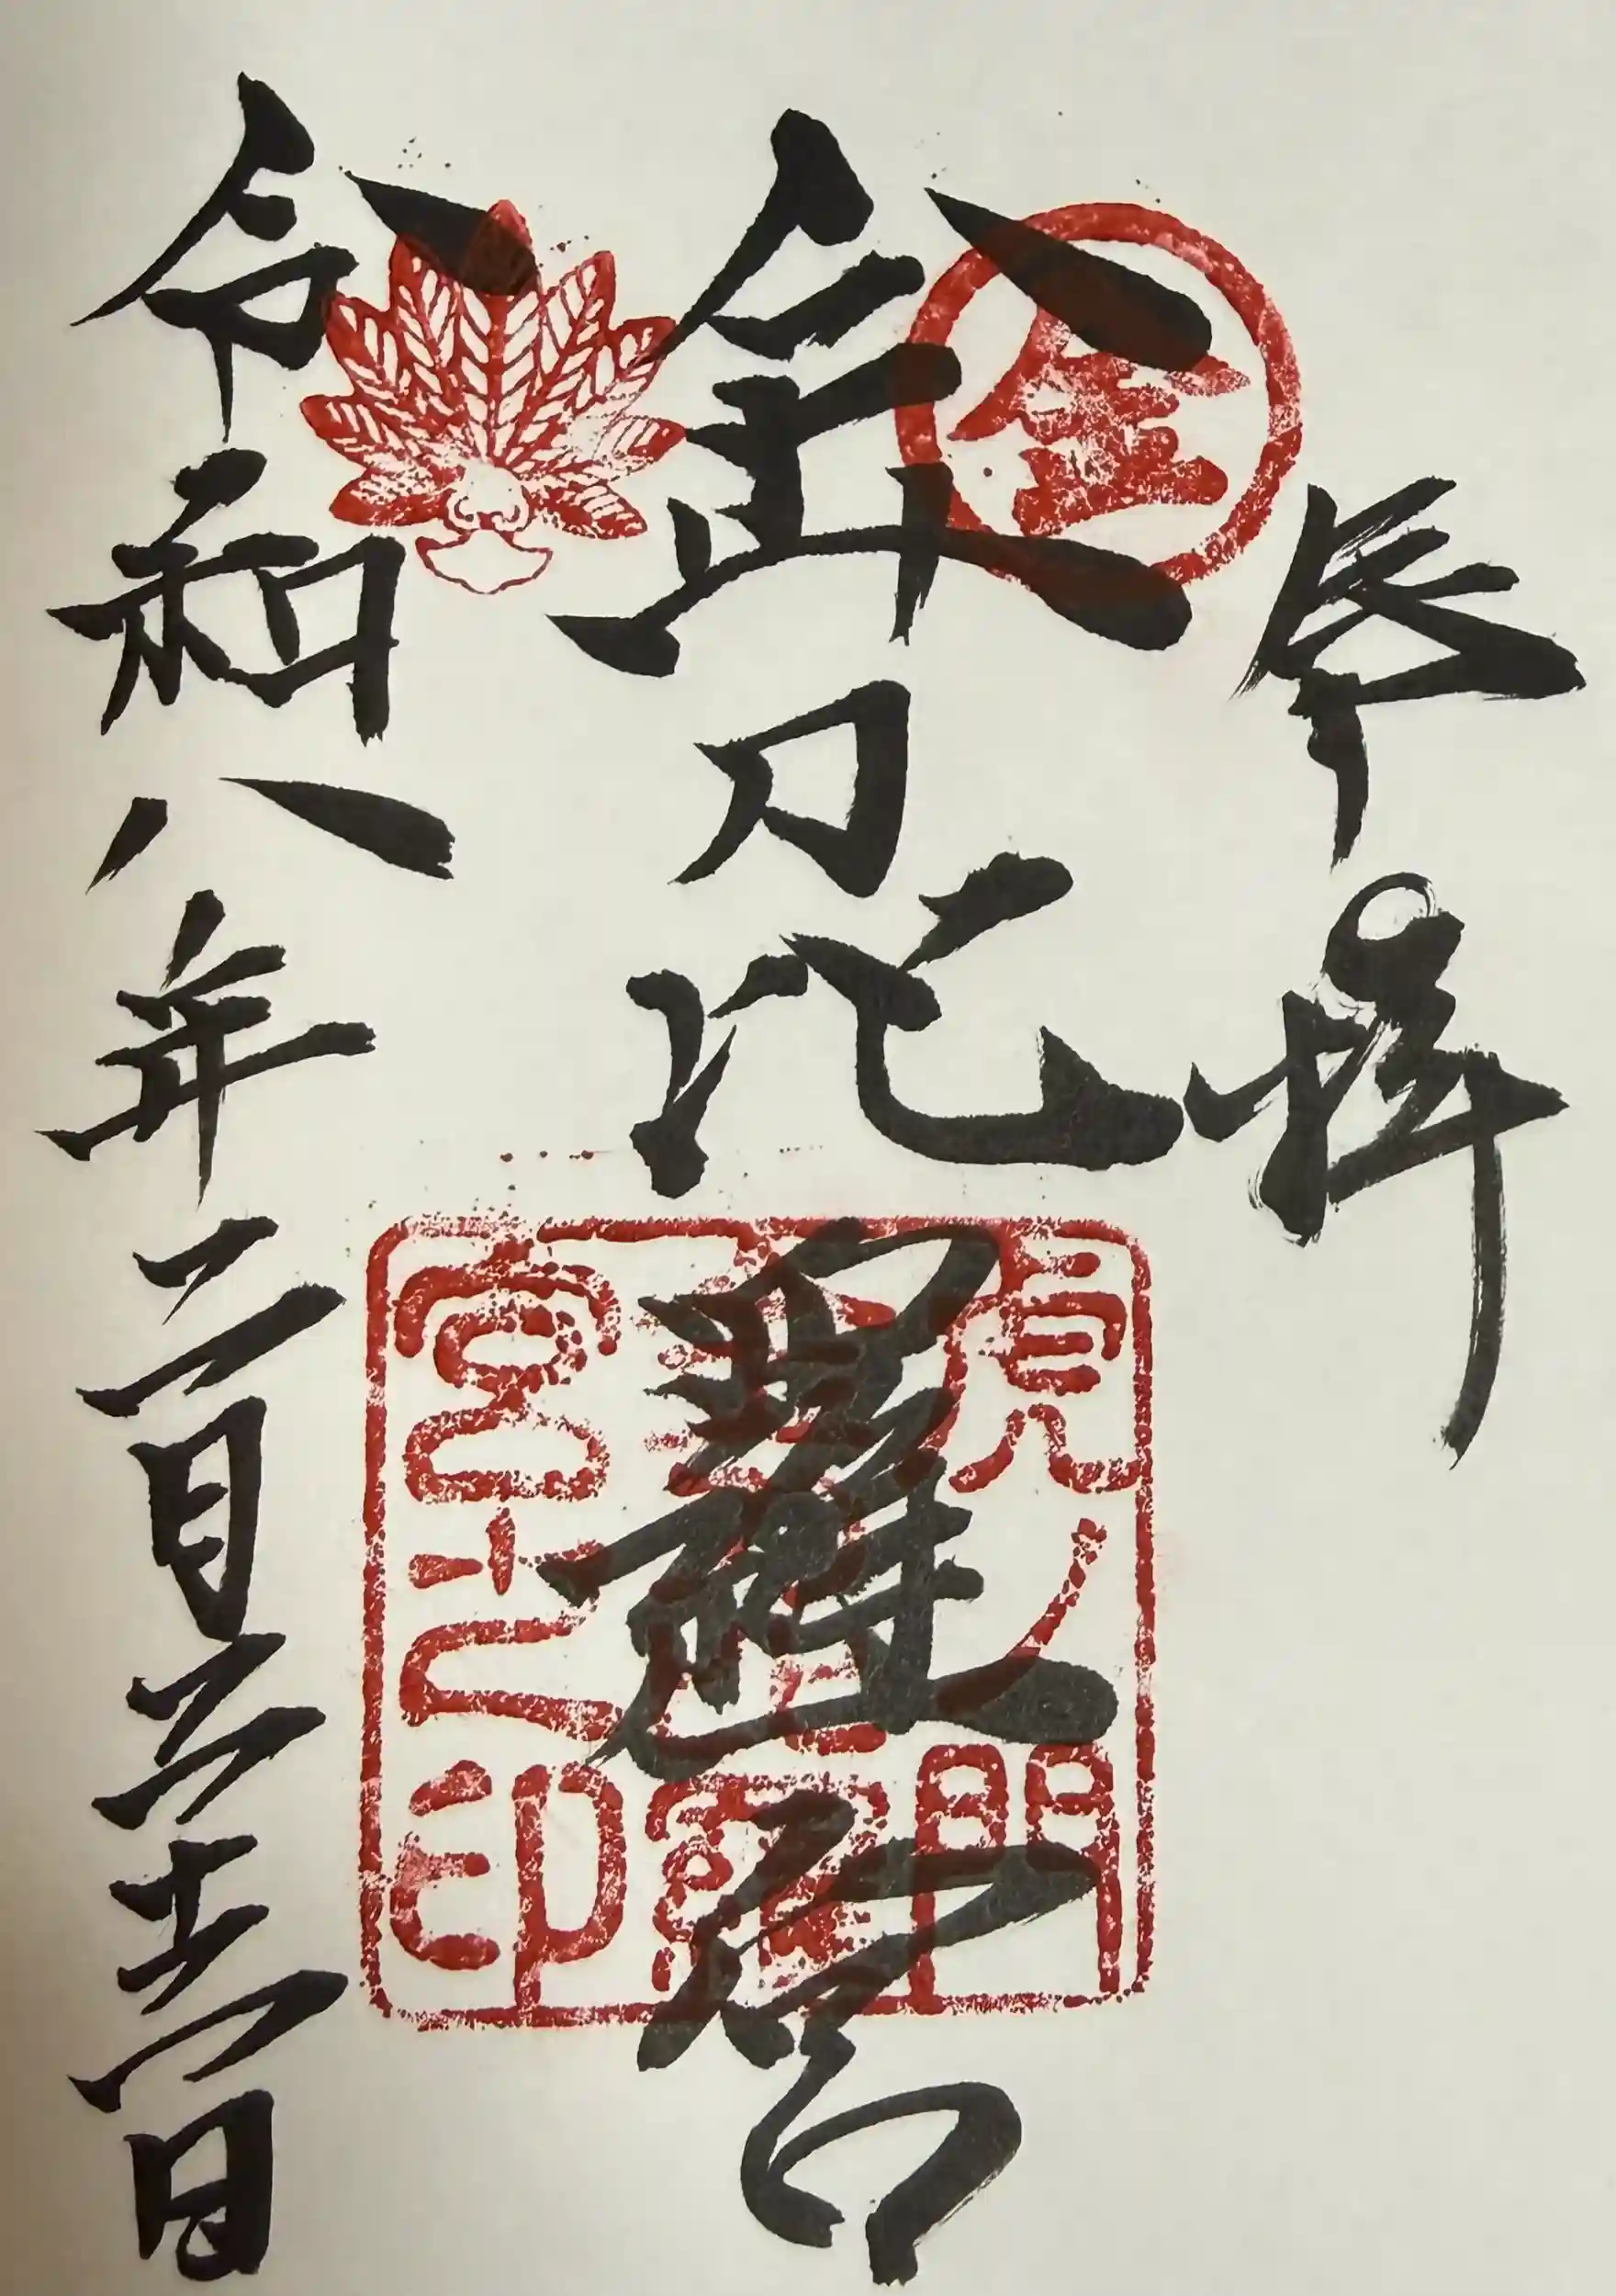 奉拝
金
金刀比羅宮
虎ノ門
宮之印
令和八年二月二十二日